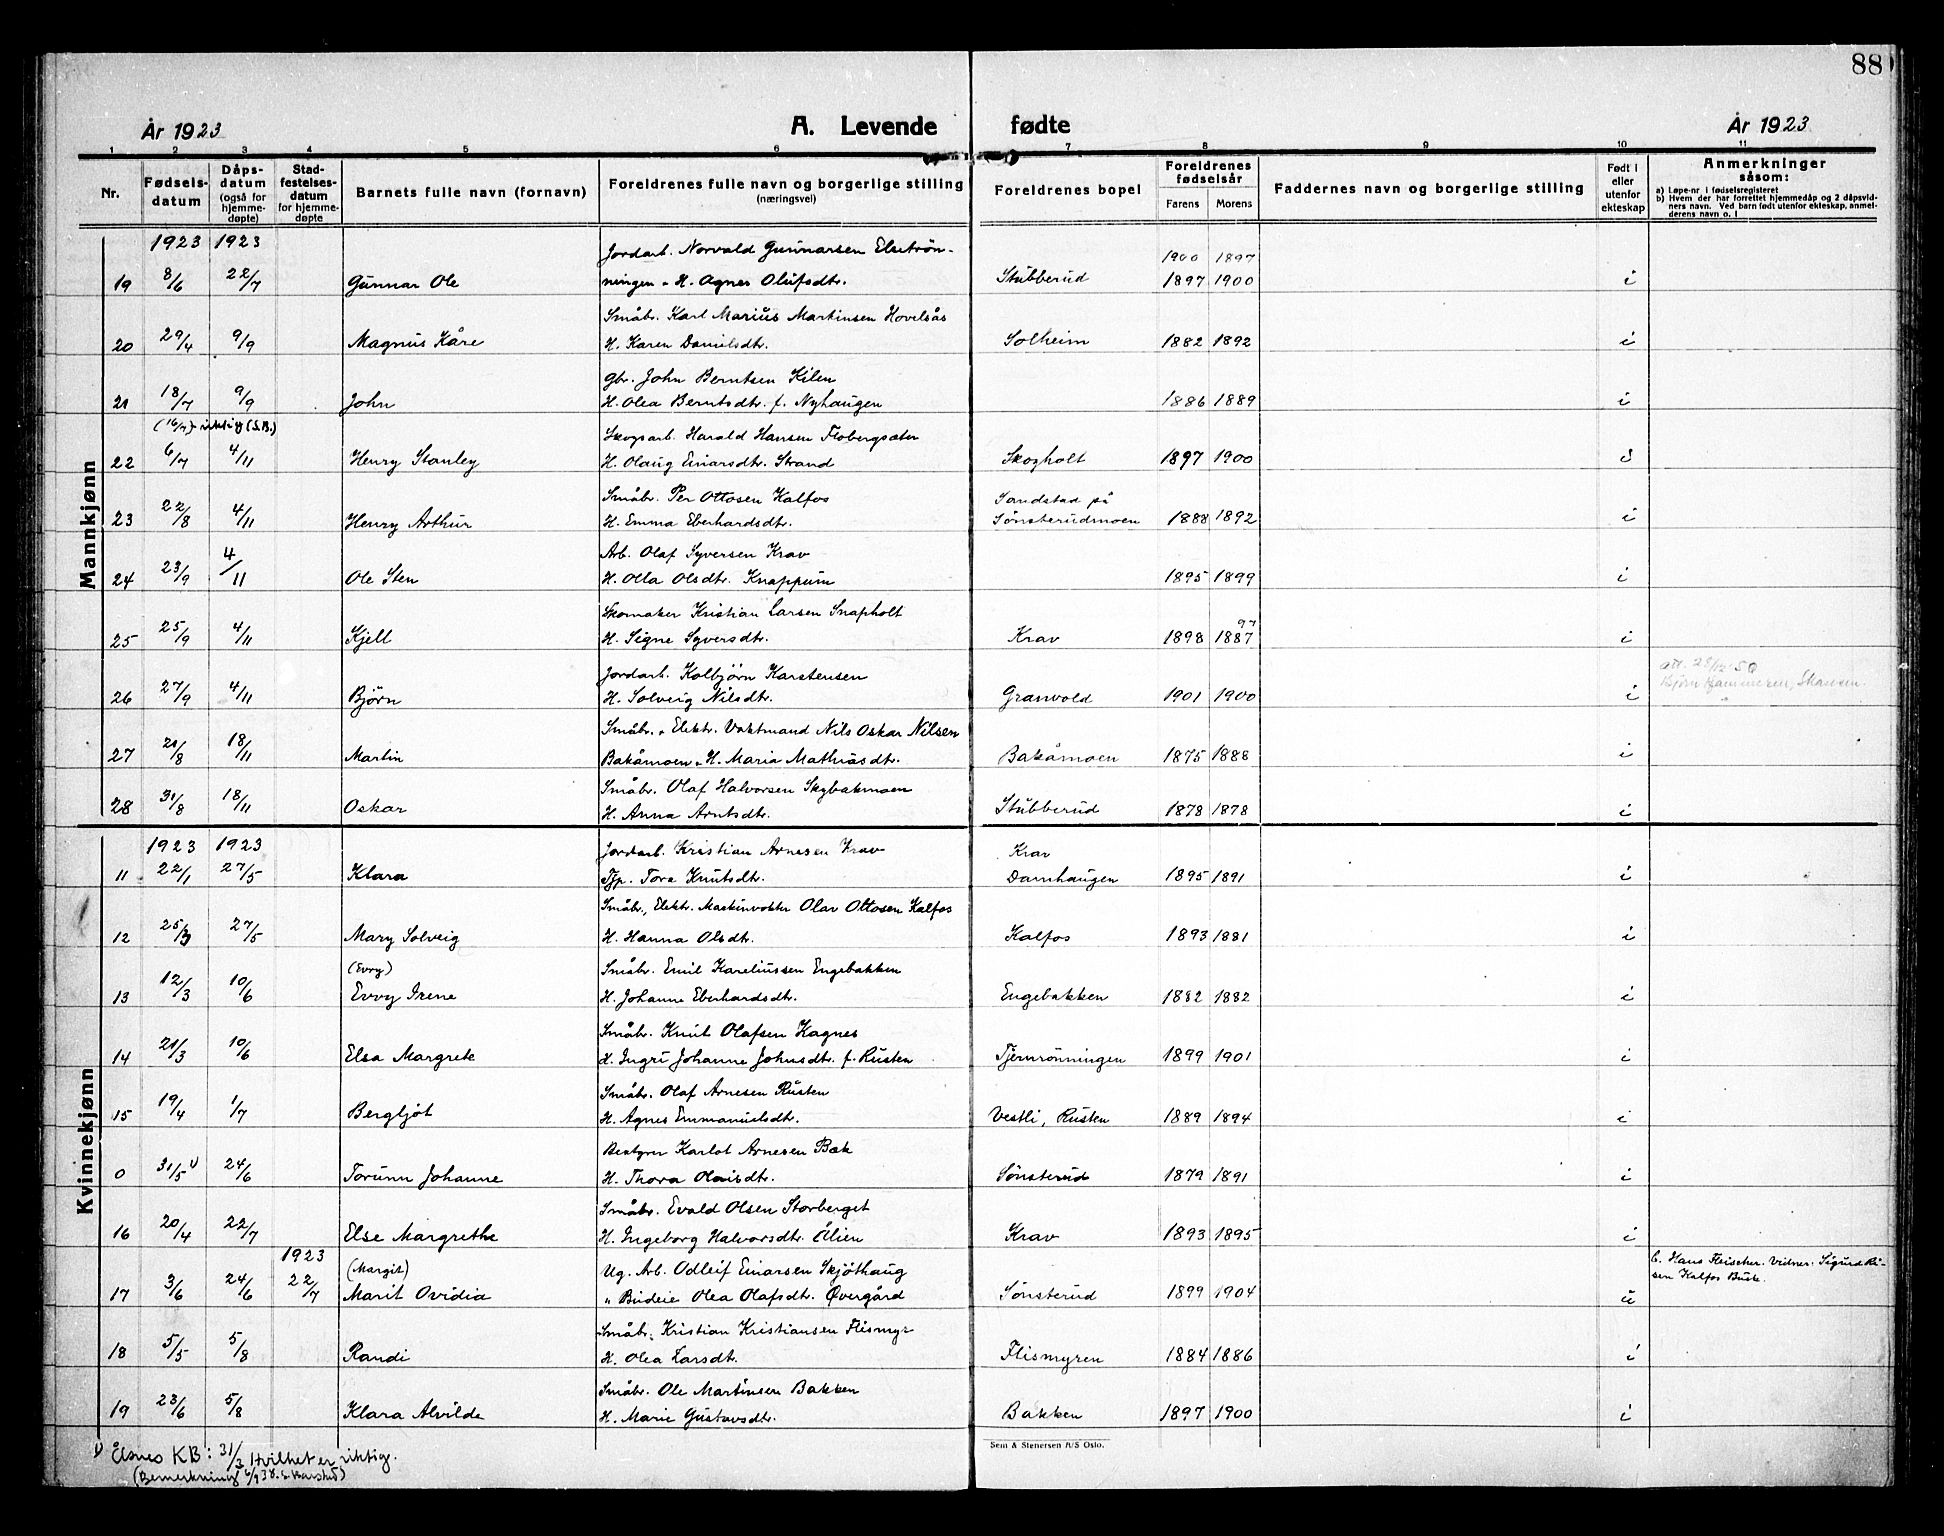 88
År 1923 A. Levende fødte År 1923
1 2 3 4 5 6 7 8 9 10 11
Nr. Fødsels-datum Dåps-datum (også for hjemme-døpte) Stad-festelses-datum for hjemme-døpte Barnets fulle navn (fornavn) Foreldrenes fulle navn og borgerlige stilling (næringsvei) Foreldrenes bopel Foreldrenes fødselsår Farens Morens Faddernes navn og borgerlige stilling Født i eller utenfor ekteskap Anmerkninger såsom:
a) Løpe-nr. i fødselsregisteret
b) Hvem der har forrettet hjemmedåp og 2 dåpsvid-
ners navn. Ved barn født utenfor ekteskap, anmel-
derens navn o. l
Mannkjønn
1923 1923 Jordarb. Norvald Gunnarsen Elsetrøn- 1900 1897
19 8/6 22/7 Gunnar Ole ningen - H. Agnes Olufsdtr. Stubberud 1897 1900 i
Småbr. Karl Marius Martinsen Hovelsås
20 29/4 9/9 Magnus Kåre H. Karen Danielsdtr. Solheim 1882 1892 i
Gbr. John Berntsen Kilen
21 18/7 9/9 John H. Olea Berntsdtr. f. Nyhaugen 1886 1889 i
(16/7) riktig (S.B.)
Skogsarb. Harald Hansen Flobergsæter
22 6/7 4/11 Henry Stanley H. Olaug Einarsdtr. Strand Skogholt 1897 1900
Småbr. Per Ottosen Kalfos Sandstad på
23 22/8 4/11 Henry Arthur H. Emma Eberhardsdtr. Sønsterudmoen 1888 1892 i
Arb. Olaf Syversen Krav
24 23/9 4/11 Ole Sten H. Olla Olsdtr. Knappum 1895 1899 i
Skomaker Kristian Larsen Snapholt 97
25 25/9 4/11 Kjell H. Signe Syversdtr. Krav 1898 1887 i
Jordarb. Kolbjørn Karstensen
26 27/9 4/11 Bjørn H. Solveig Nilsdtr. Granvold 1901 1900 i
Småbr. - Elektr. Vaktmand Nils Oskar Nilsen
27 21/8 18/11 Martin Bakåmoen - H. Maria Mathiasdtr. Bakåmoen 1875 1888 i
Småbr. Olaf Halvorsen Skybakmoen
28 31/8 18/11 Oskar H. Anna Arntsdtr. Stubberud 1878 1878 i
Kvinnekjønn
1923 1923 Jordarb. Kristian Arnesen Krav Krav
11 22/1 27/5 Klara Tjp. Tora Knutsdtr. Damhaugen 1895 1891 i
Småbr., Elektr. Maskinvokter Olav Ottosen Kalfos
12 25/3 27/5 Mary Solveig H. Hanna Olsdtr. Kalfos 1893 1881 i
(Evry) Småbr. Emil Kareliussen Engebakken
13 12/3 10/6 Evvy Irene H. Johanne Eberhardsdtr. Engebakken 1882 1882 i
Småbr. Knut Olafsen Kagnes
14 21/3 10/6 Elsa Margrete H. Ingri Johanne Johnsdtr. f. Rusten Tjernrønningen 1899 1901 i
Småbr. Olaf Arnesen Rusten
15 19/4 1/7 Bergljot H. Agnes Emmanuelsdtr. Vestli, Rusten 1889 1894 i
Bestyrer Karlot Arnesen Bæk
0 31/5 1) 24/6 Torunn Johanne H. Thora Olaisdtr. Sønsterud 1879 1891 i
Småbr. Evald Olsen Storberget
16 20/4 22/7 Else Margrethe H. Ingeborg Halvorsdtr. Ålien Krav 1893 1895 i
1923 (Margit) Ug. Arb. Odleif Einarsen Skjøthaug b. Hans Fleischer. Vidner: Sigurd
17 3/6 24/6 22/7 Marit Ovidia " Budeie Olea Olafsdtr. Øvergård Sønsterud 1899 1904 u Kalfos
Småbr. Kristian Kristiansen Flismyr
18 5/5 5/8 Randi H. Olea Larsdtr. Flismyren 1884 1886 i
Småbr. Ole Martinsen Bakken
19 23/6 5/8 Klara Alvilde H. Marie Gustavsdtr. Bakken 1897 1900 i
1) Åsnes KB: 31/3 Hvilket er riktig.
(Bemerkning 6/9 38.
Sem & Stenersen A/S Oslo.